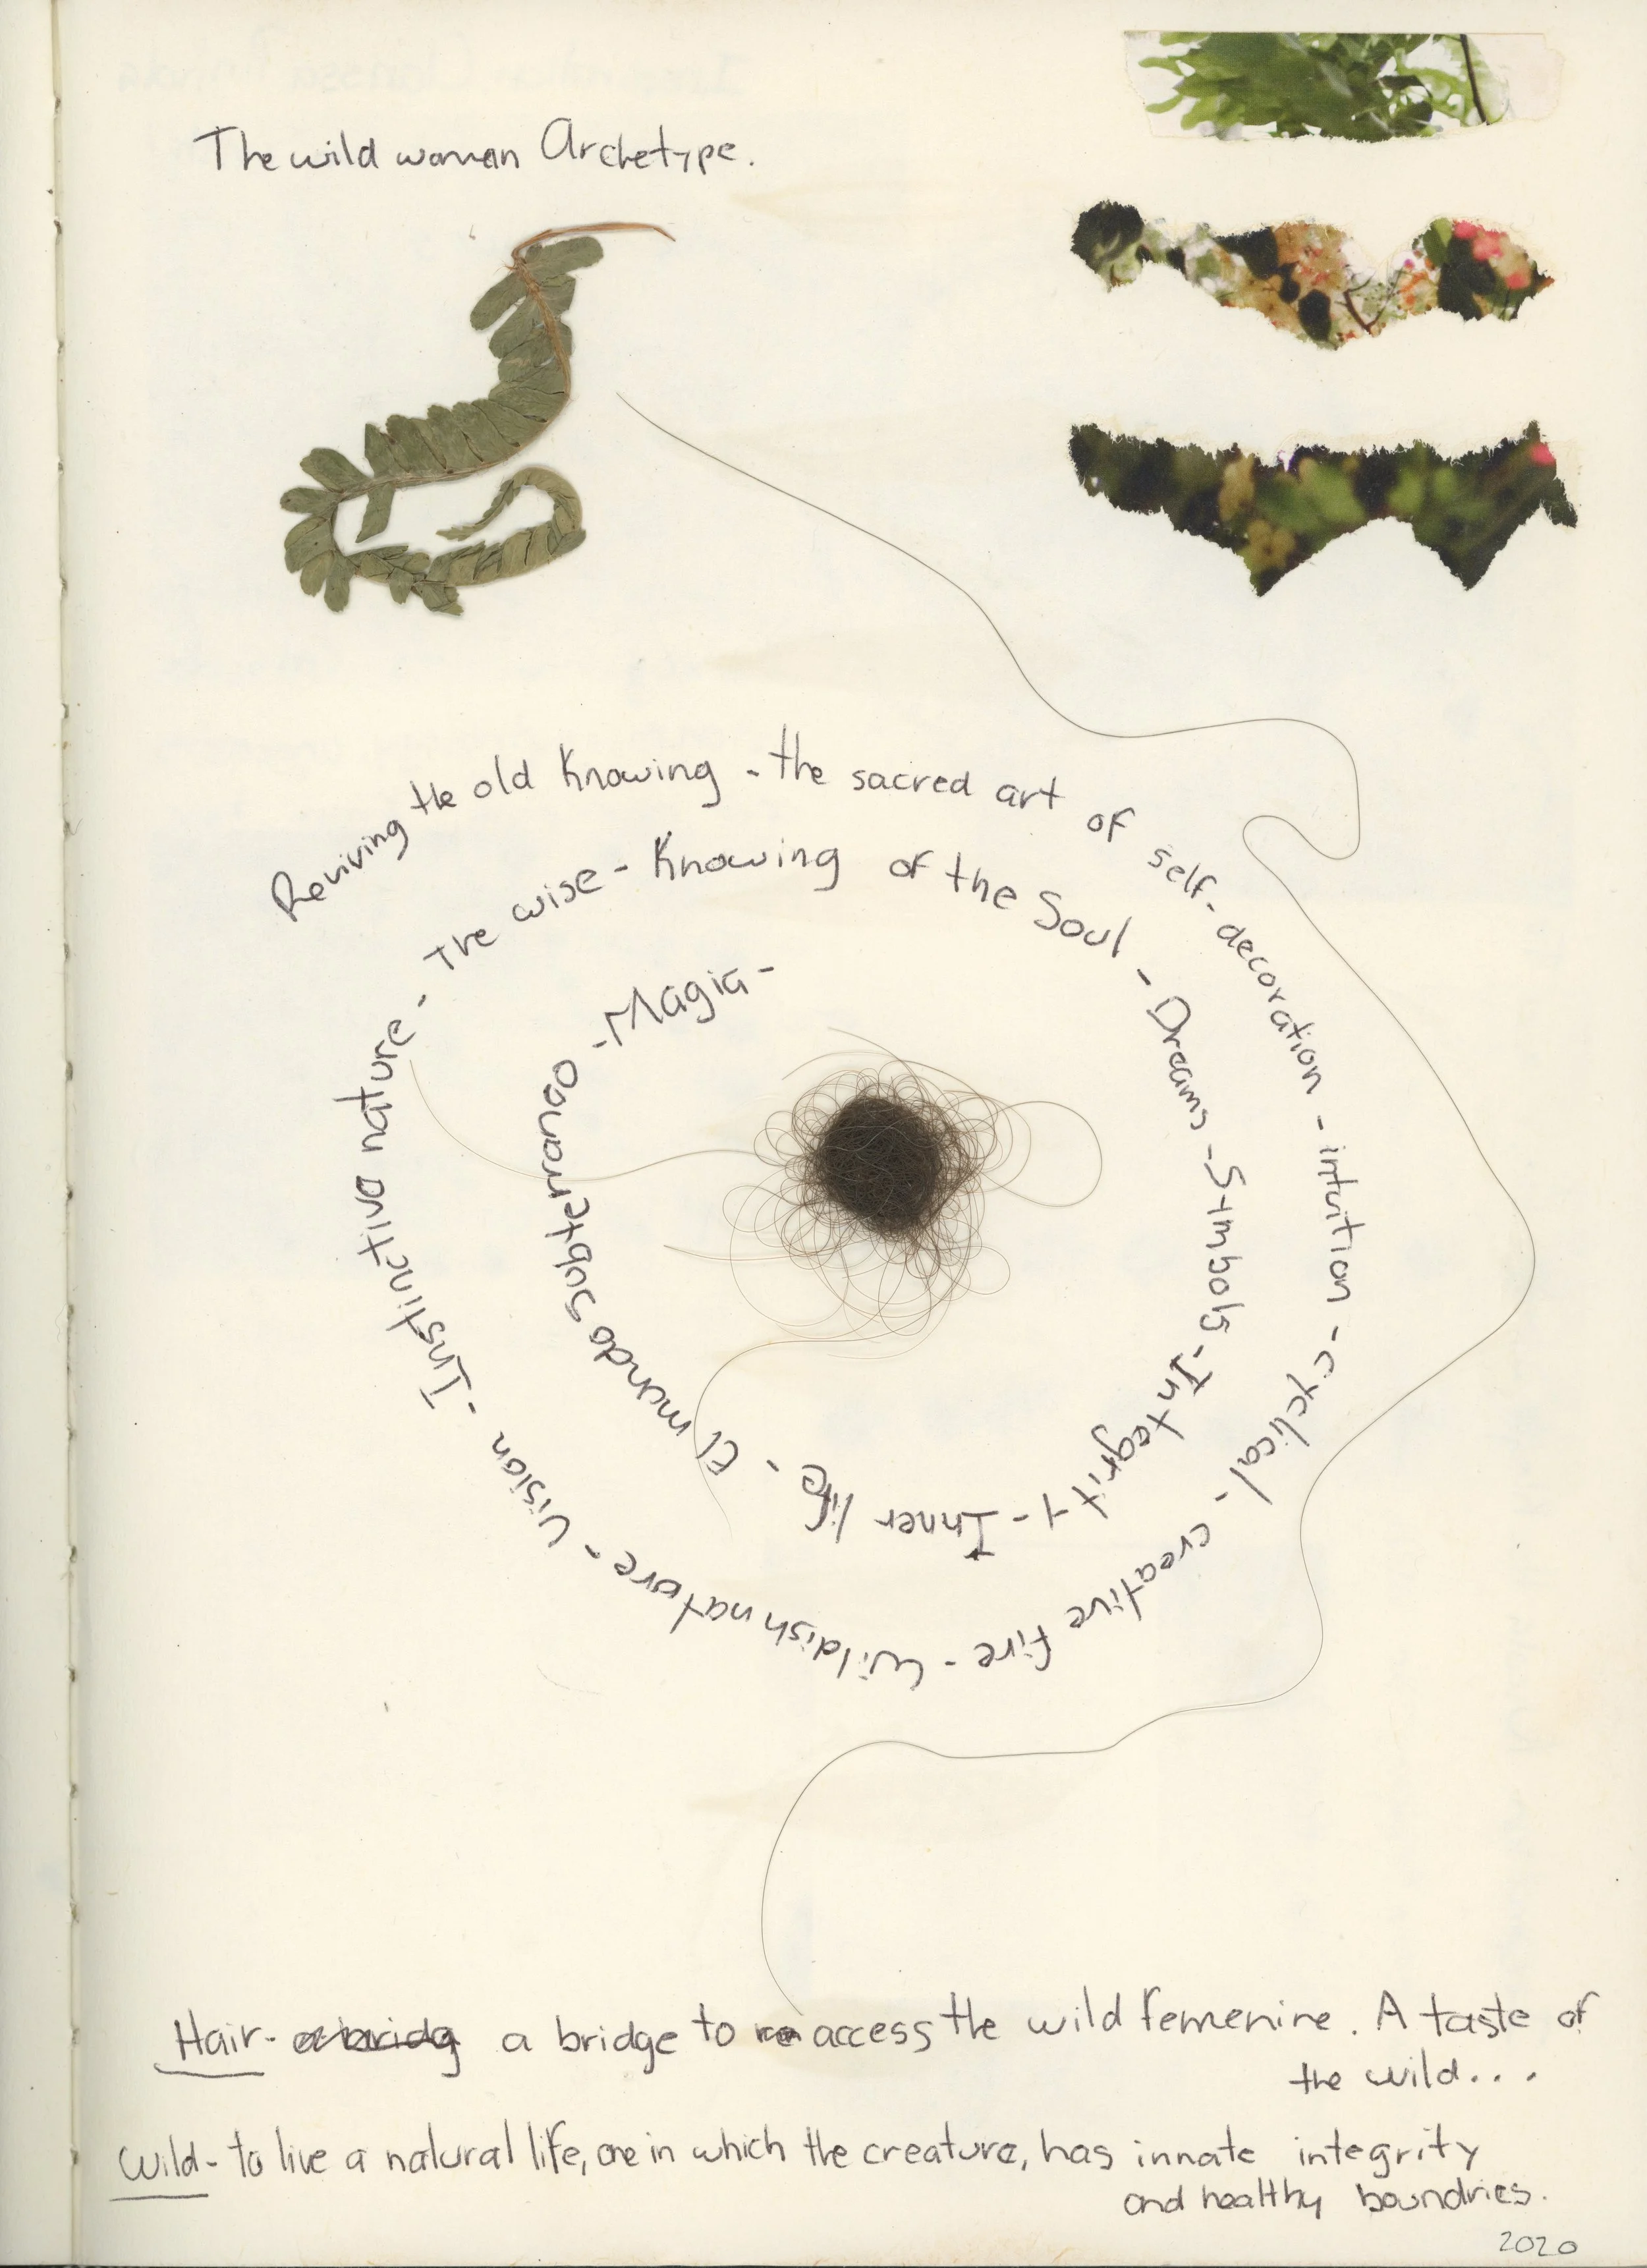 The wild woman Archetype.
Reviving the old Knowing - the sacred art of self-decoration - intuition - cyclical - creative fire - Wildish nature - Vision - Instinctive nature - The wise - Knowing of the Soul - Dreams - Symbols - Integrity - Inner life - El mundo subterraneo - Magia -
Hair - a bridg a bridge to access the wild femenine. A taste of
the wild...
Wild - to live a natural life, one in which the creature, has innate integrity
and healthy boundries.
2020